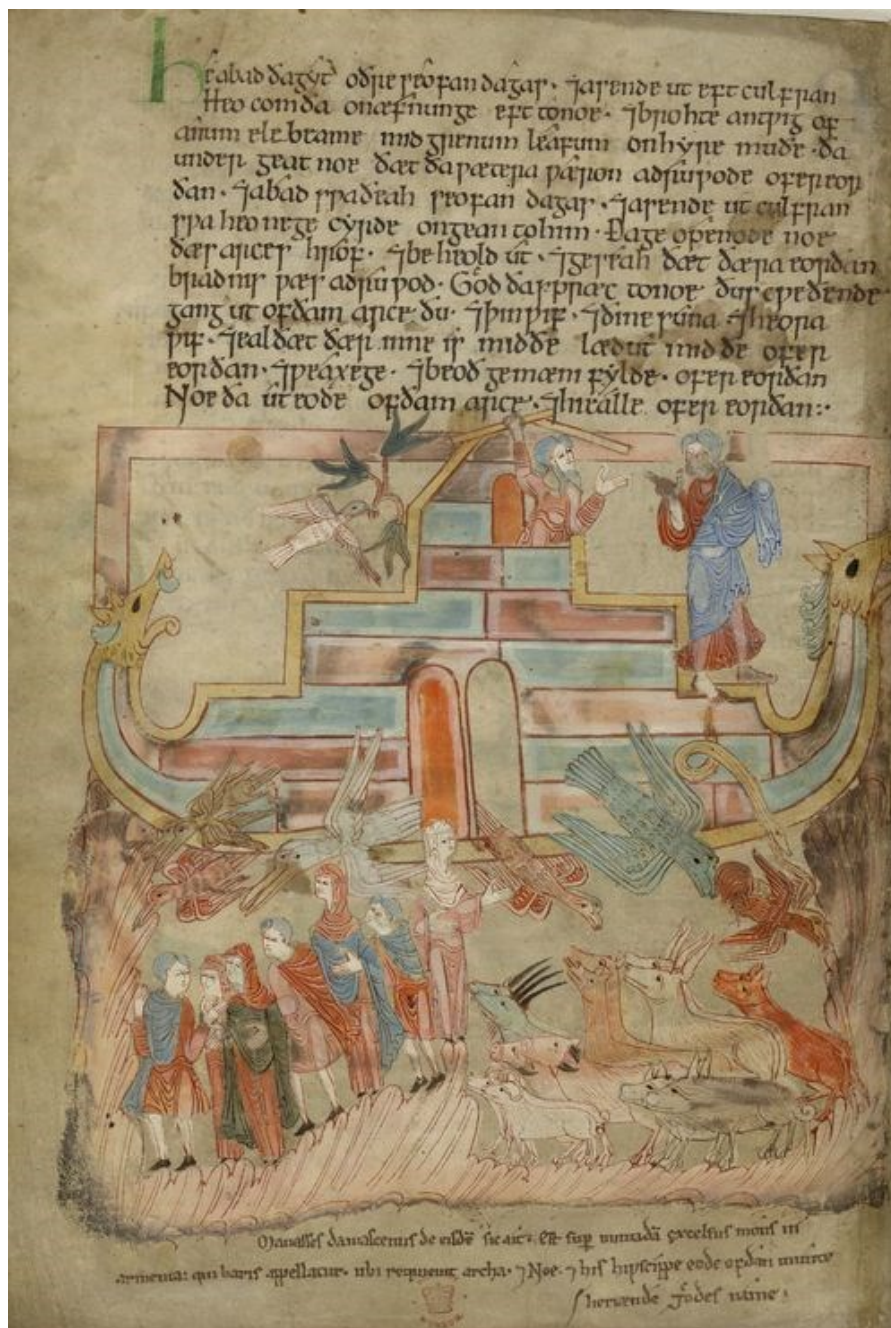 He abad ða gyt oðre seofan dagas· ⁊ asende ut eft culfran
Heo com ða on æfnunge eft to noe· ⁊ brohte an twig of
anum elebeame mid grenum leafum on hyre muðe· ða
under geat noe ðæt ða wætera wæron adruwode ofer eor
ðan· ⁊ abad swa ðeah seofan dagas· ⁊ asende ut culfran
swa heo ne ge cyrde ongean to him· Ða ge openode noe
ðæs arces hrof· ⁊ be heold ut· ⁊ geseah ðæt ðæra eorðan
bradnis wæs adruwod· God ða spræc to noe ðus cweðende
gang ut of ðam arce ðu· ⁊ þin wif· ⁊ ðine suna ⁊ heora
wif· ⁊ eal ðæt ðær inne is mid ðe læd ut mid ðe ofer
eorðan· ⁊ weaxege· ⁊ beoð gemænifylde· ofer eorðan
Noe ða ut eode of ðam arce· ⁊ hi ealle ofer eorðan:·
Manasses damascenus de eisdē sic ait· Est sup̄ numidā excelsus mons in
armenia: qui baris appellatur· ubi requieuit archa· ⁊ Noe· ⁊ his hipscippe eode of ðan munte
heriende godes name·